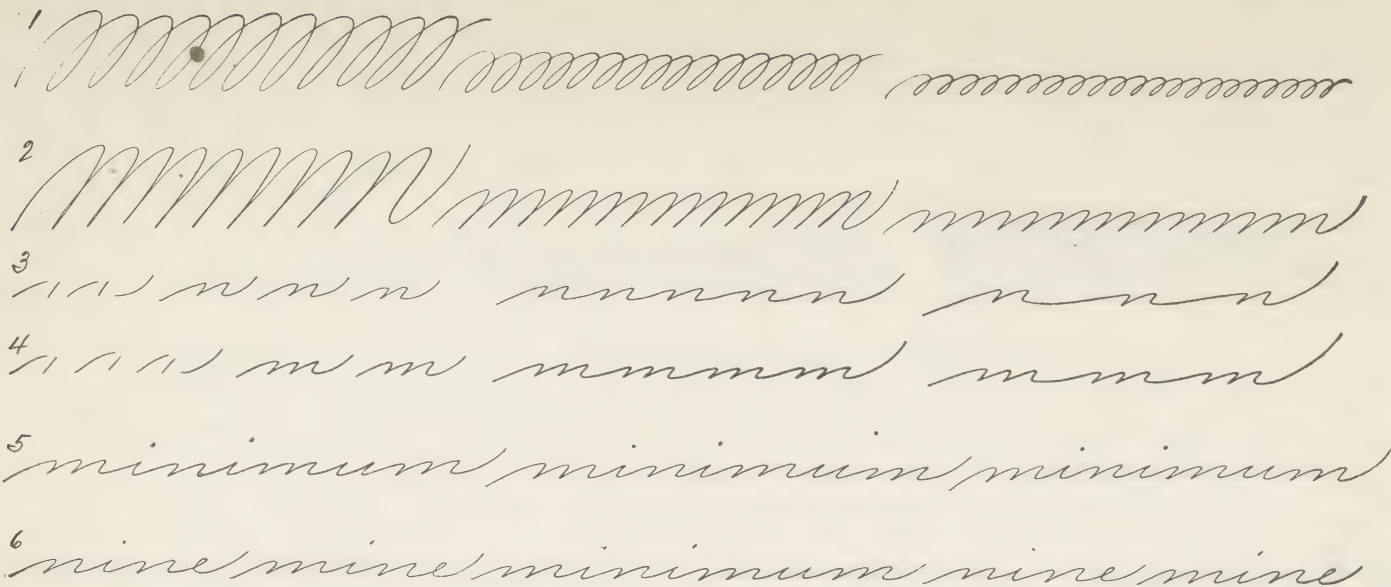 1
2
3 n n n nnnnn nnn
4 m m mmmm mmm
5 minimum minimum minimum
6 nine mine minimum nine mine